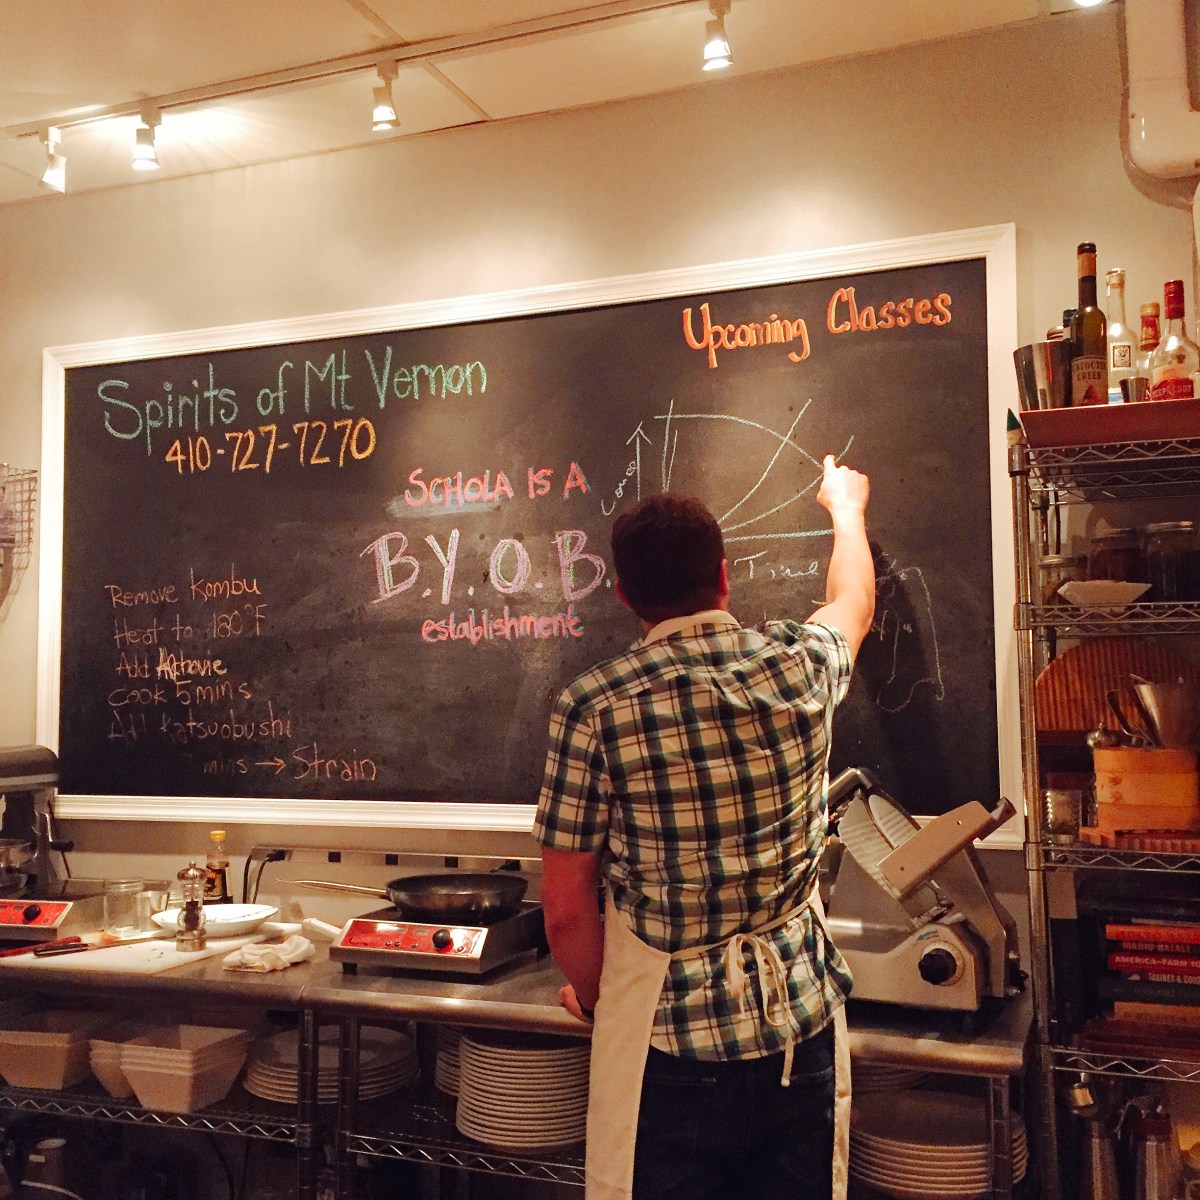 Upcoming Classes
Spirits of Mt Vernon
410-727-7270
SCHOLA IS A
B.Y.O.B.
establishment
Time
Remove Kombu
Heat to 180°F
Add
Cook 5 mins
Add Katsuobushi
mins → Strain
CATOCTIN
CREEK
MARIO BATALI
AMERICA-FARM TO